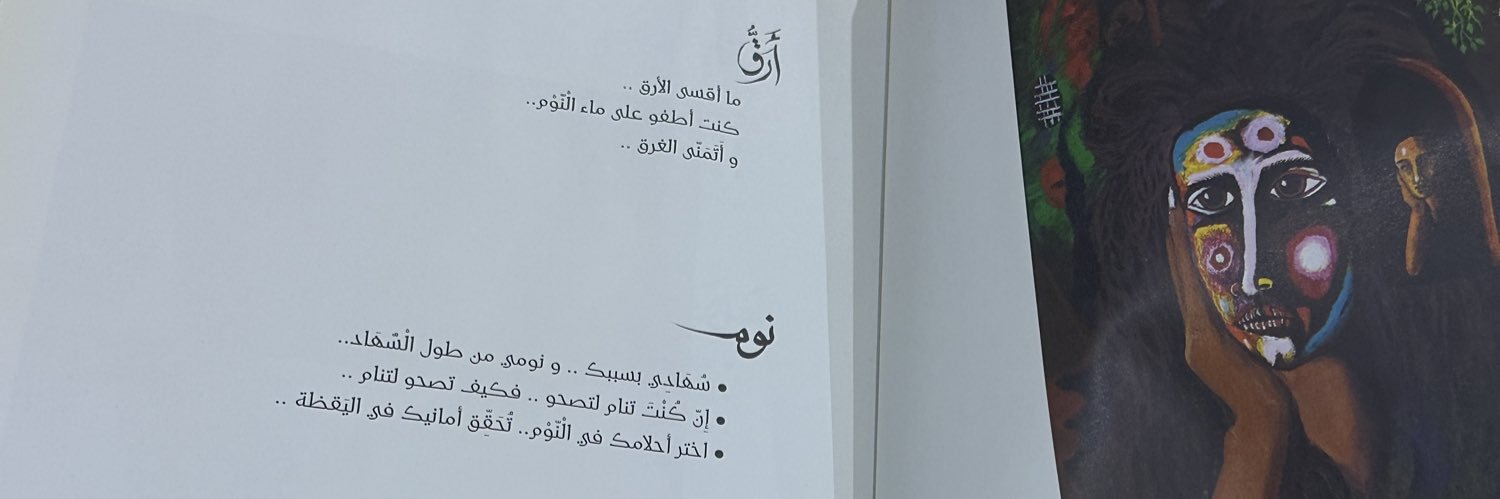 أَرَقٌ
ما أقسى الأرق ..
كنت أطفو على ماء الْنَّوْم..
و أَتَمَنّى الغرق ..
نوم
• سُهَادِي بسببك .. و نومي من طول الْسُّهَاد..
• إِنّ كُنْتَ تنام لتصحو .. فكيف تصحو لتنام ..
• اختر أحلامك في الْنَّوْم.. تُحَقِّق أمانيك في اليَقظة ..